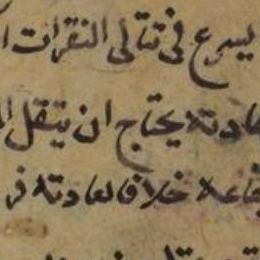 يسرع في تتالي النقرات ا
عادته يحتاج ان ينتقل ال
خلاف لعادته فر